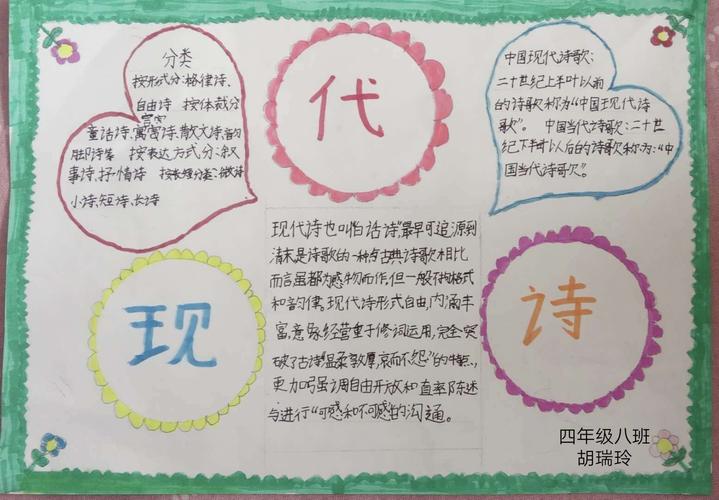 分类
按形式分:格律诗、
自由诗 按体裁分
童话诗、寓言诗、散文诗、韵
脚诗等 按表达方式分:叙
事诗、抒情诗 按长短分:微诗
小诗、短诗、长诗
代
中国现代诗歌:
二十世纪上半叶以前
的诗歌称为“中国现代诗
歌”。 中国当代诗歌:二十世
纪下半叶以后的诗歌称为:“中
国当代诗歌”。
现
现代诗也叫“白话诗”最早可追源到
清末是诗歌的一种与古典诗歌相比
而言虽都为感物而作,但一般不拘格式
和韵律。现代诗形式自由,内涵丰
富,意象经营重于修词运用,完全突
破了古诗“温柔敦厚,哀而不怨”的特点,
更加强调自由开放和直率陈述
与进行“可感和不可感性的沟通。
诗
四年级八班
胡瑞玲